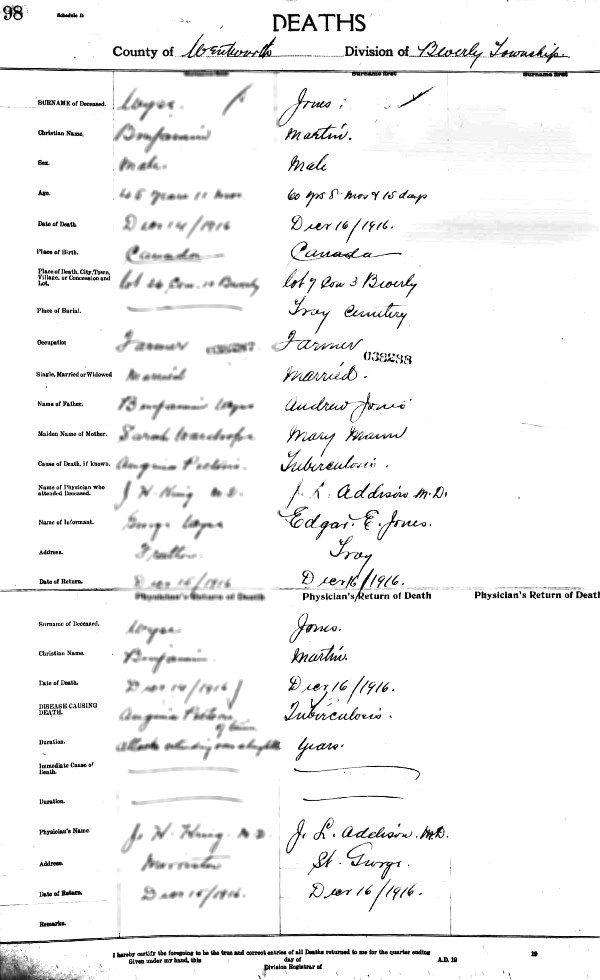 98
Schedule D.
DEATHS
County of Wentworth Division of Beverly Township.
Surname first Surname first
SURNAME of Deceased. Jones
Christian Name. Benjamin Martin.
Sex. Male. Male
Age. 60 yrs 8 mos & 15 days
Date of Death. Decr 14/1916 Decr 16/1916.
Place of Birth. Canada Canada
Place of Death, City, Town, Village, or Concession and Lot. Beverly lot 7 Con 3 Beverly
Place of Burial. Troy Cemetery
Occupation Farmer Farmer
038288
Single, Married or Widowed Married Married.
Name of Father. Benjamin Andrew Jones
Maiden Name of Mother. Sarah Mary Mann
Cause of Death, if known. Angina Tuberculosis.
Name of Physician who attended Deceased. M.D. J. L. Addison M.D.
Name of Informant. George Edgar. E. Jones.
Address. Troy
Date of Return. Decr 15/1916 Decr 16/1916.
Physician's Return of Death Physician's Return of Death Physician's Return of Death
Surname of Deceased. Jones.
Christian Name. Benjamin. Martin.
Date of Death. Decr 14/1916 Decr 16/1916.
DISEASE CAUSING DEATH. Angina Tuberculosis.
Duration. Years.
Immediate Cause of Death.
Duration.
Physician's Name. M.D. J. L. Addison. M.D.
Address. St. George.
Date of Return. Decr 15/1916. Decr 16/1916.
Remarks.
I hereby certify the foregoing to be the true and correct entries of all Deaths returned to me for the quarter ending 19
Given under my hand, this day of A.D. 19
Division Registrar of